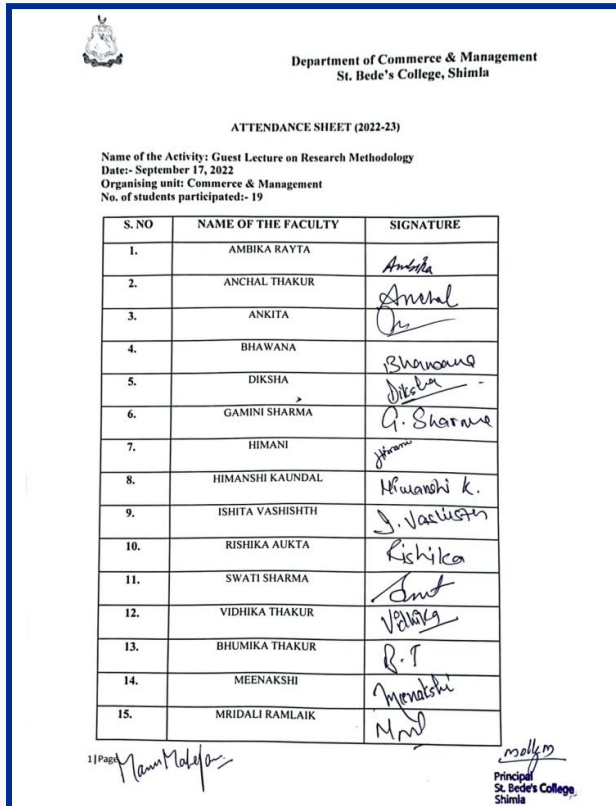 Department of Commerce & Management
St. Bede's College, Shimla
ATTENDANCE SHEET (2022-23)
Name of the Activity: Guest Lecture on Research Methodology
Date:- September 17, 2022
Organising unit: Commerce & Management
No. of students participated:- 19
S. NO NAME OF THE FACULTY SIGNATURE
1. AMBIKA RAYTA Ambika
2. ANCHAL THAKUR Anchal
3. ANKITA
4. BHAWANA Bhawana
5. DIKSHA Diksha
6. GAMINI SHARMA G. Sharma
7. HIMANI Himani
8. HIMANSHI KAUNDAL Himanshi K.
9. ISHITA VASHISHTH I. Vashisth
10. RISHIKA AUKTA Rishika
11. SWATI SHARMA
12. VIDHIKA THAKUR Vidhika
13. BHUMIKA THAKUR B.T
14. MEENAKSHI Meenakshi
15. MRIDALI RAMLAIK
1|Page
Principal
St. Bede's College
Shimla